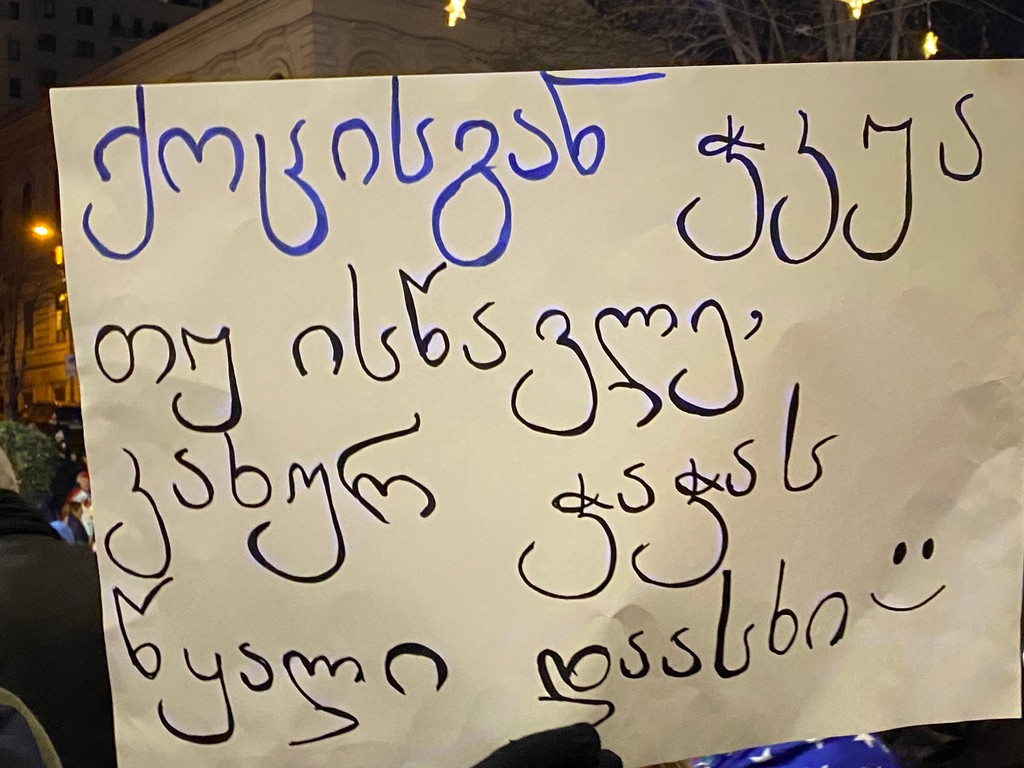 ქოცისგან ჭკუა
თუ ისწავლე,
კახურ ჭაჭას
წყალი დაასხი